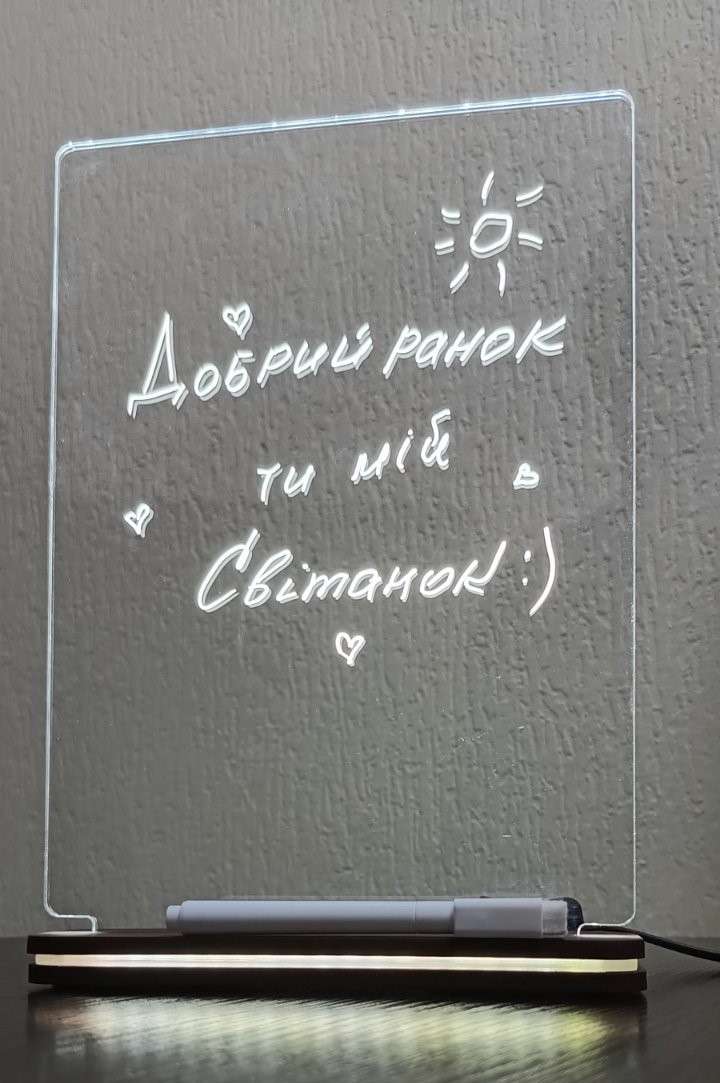 Добрий ранок
ти мій
Світанок :)